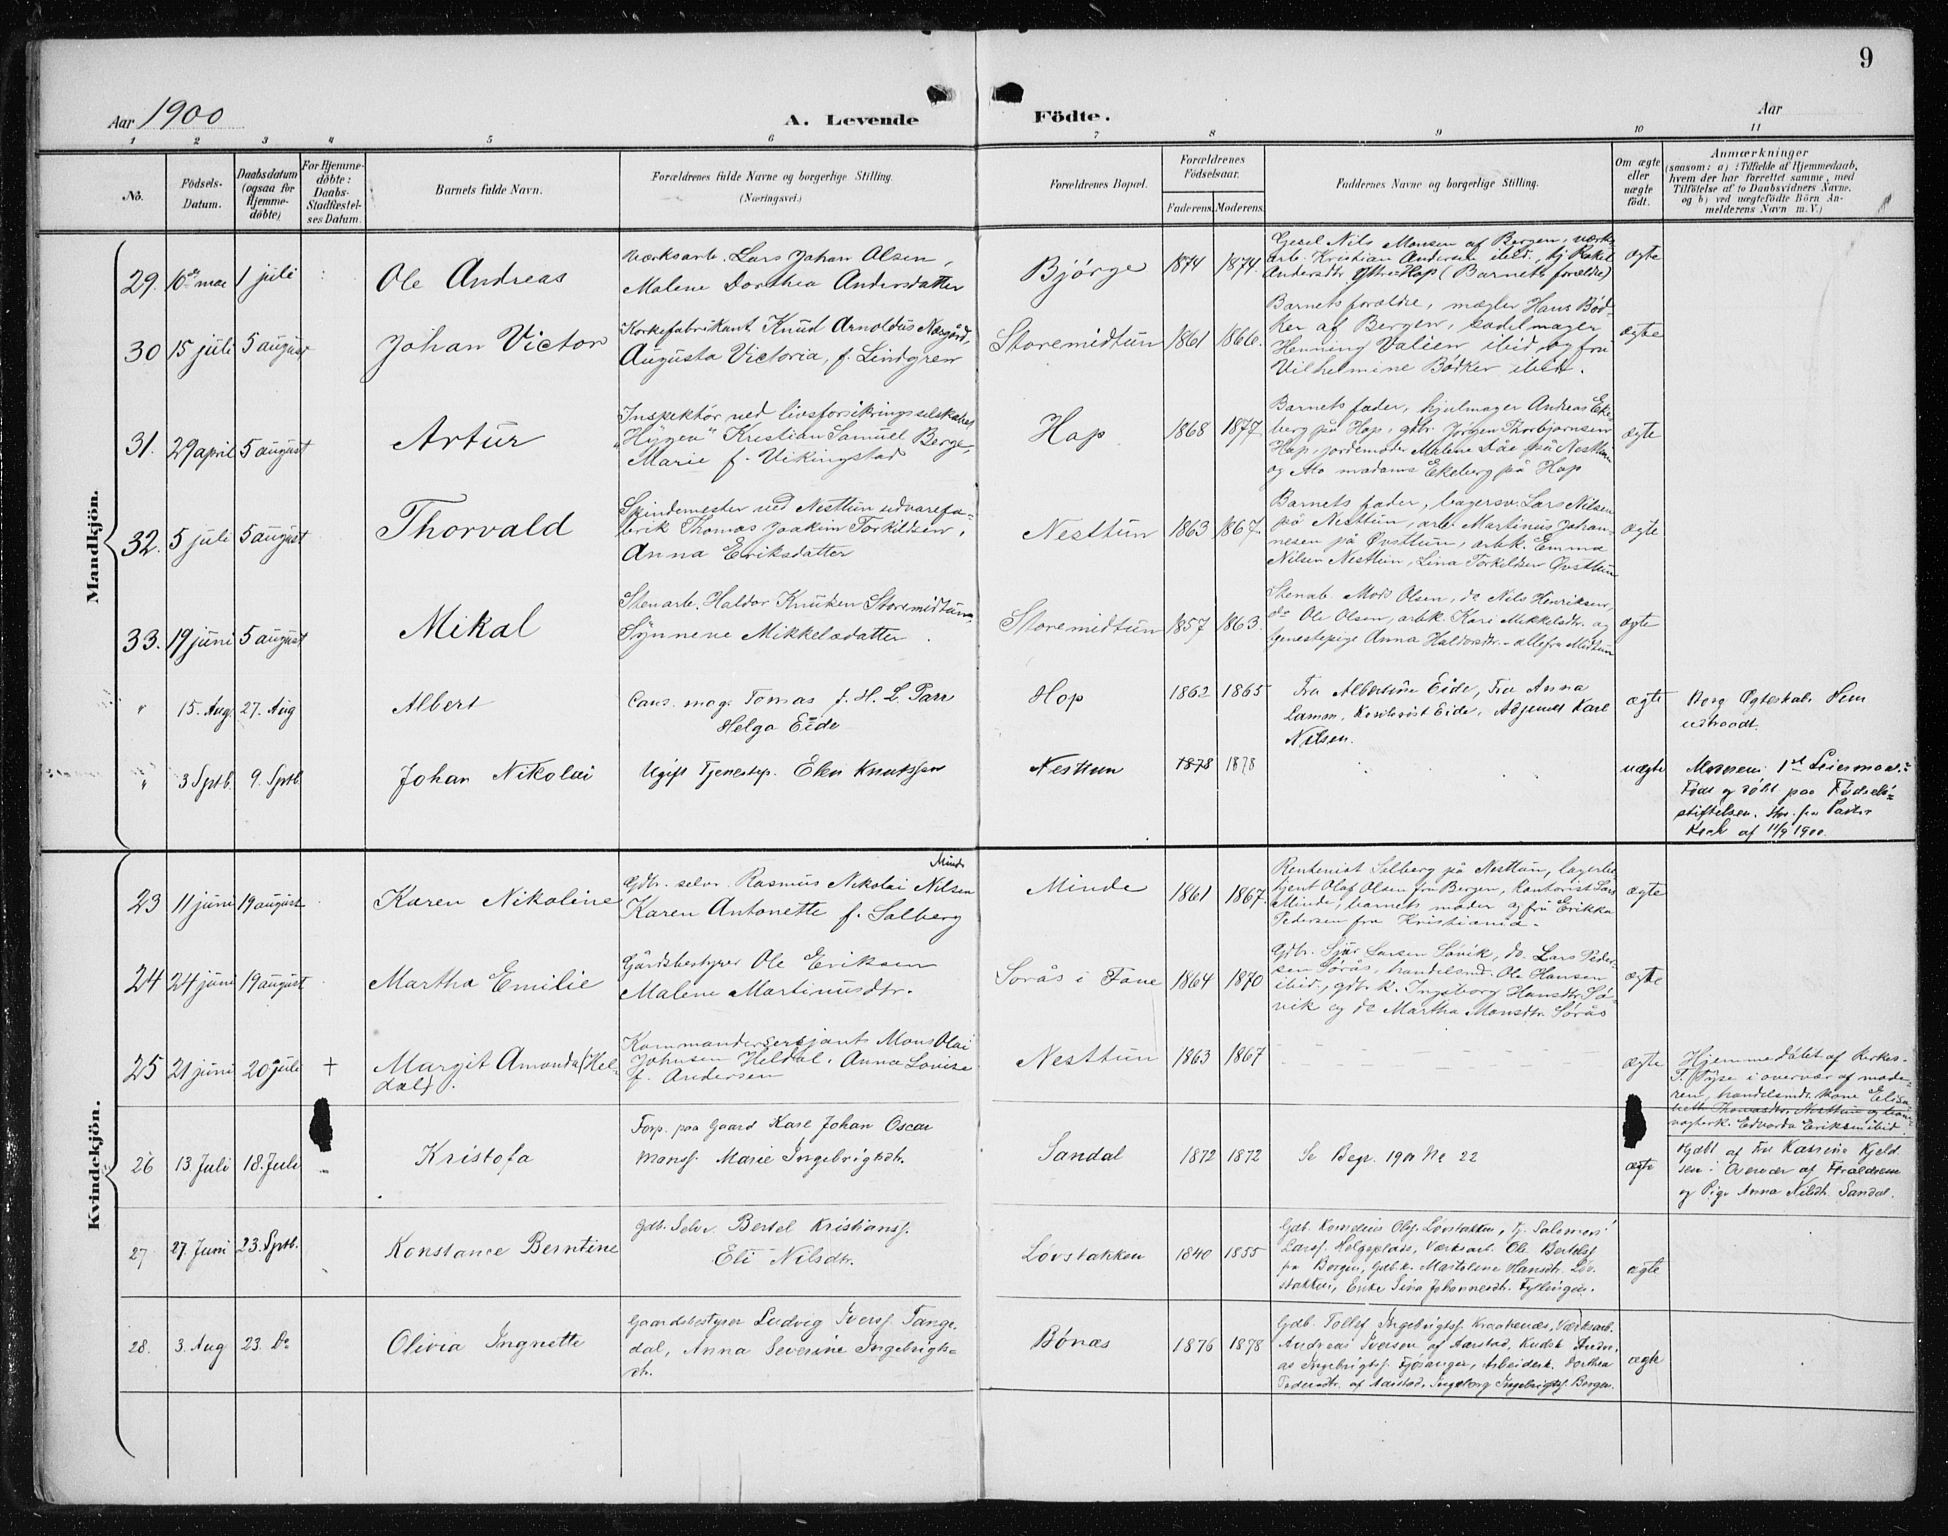 9
Aar 1900
A. Levende Födte.
Aar
1 2 3 4 5 6 7 8 9 10 11
No.
Födsels-
Datum.
Daabsdatum
(ogsaa for
Hjemme-
döbte)
For Hjemme-
döbte:
Daabs-
Stadfæstel-
ses Datum.
Barnets fulde Navn.
Forældrenes fulde Navne og borgerlige Stilling.
(Næringsvei.)
Forældrenes Bopæl.
Forældrenes
Födselsaar.
Faderens. Moderens.
Faddernes Navne og borgerlige Stilling.
Om ægte
eller
uægte
födt.
Anmærkninger
(saasom: a) i Tilfælde af Hjemmedaab,
hvem der har forrettet samme, med
Tilföielse af to Daabsvidners Navne.
og b) ved uægtefödte Börn An-
melderens Navn m. V.)
Mandkjön.
29. 10de mai 1 juli
Ole Andreas
Værksarb. Lars Johan Olsen,
Malene Dorthea Andersdatter
Bjørge 1874 1874.
Gesel Nils Monsen af Bergen, værks-
arb. Kristian Andersen ibid., tj. Rakel
Andersdtr. Ytre-Hop (Barnets forældre)
ægte
30 15 juli 5 august
Johan Victor
Korkefabrikant Knud Arnoldus Næsgård,
Augusta Victoria, f. Lindgren
Storemidtun 1861 1866.
Barnets forældre, mægler Hans Bød-
ker af Bergen, sadelmager
Henning Valien ibid, og fru
Vilhelmine Bødker ibid.
ægte
31. 29 april 5 august
Artur
Inspektør ved livsforsikringsselskabet
"Hygea" Kristian Samuel Berge,
Marie f. Vikingstad
Hop 1868 1877.
Barnets fader, hjulmager Andreas Eke-
berg på Hop, gdbr. Jørgen Thorbjørnsen
Hop, jordemoder Malene Låe frå Nesttun
og Ata madame Ekeberg på Hop
ægte
32. 5 juli 5 august
Thorvald
Spindemester ved Nesttun uldvarefa-
brik Thomas Joakim Torkildsen,
Anna Eriksdatter
Nesttun 1863 1867.
Barnets fader, bagersv. Lars Nilsen
på Nesttun, arb. Martinus Johan-
nesen på Øvsttun, arbk. Emma
Nilsen Nesttun, Lina Torkildsen Øvsttun
ægte
33. 19 juni 5 august
Mikal
Stenarb. Haldor Knutsen Storemidtun
Synneve Mikkelsdatter
Storemidtun 1857 1863.
Stenab. Mons Olsen, do Nils Henriksen,
do Ole Olsen, arbk. Kari Mikkelsdtr. og
tjenestepige Anna Haldorsdtr. - alle fra Midtun
ægte
" 15. Aug. 27. Aug
Albert
Cans. mag. Tomas J. H. L. Parr
Helga Eide
Hop 1862 1865
Fru Albertine Eide, Fru Anna
Lamm, Eide, Karl
Nilsen.
ægte
Borg. Ægteskab. Hem
udtraadt.
" 3 Sptb. 9. Sptb.
Johan Nikolai
Ugift Tjenestep. Elen Knutsen
Nesttun 1878 1878
uægte
Moderens 1st Leiermaal.
Födt og döbt paa Födsels=
stiftelsen. fra Pastor
af 11/9 1900.
Kvindekjön.
23 11 juni 19 august
Karen Nikoline
Gdbr. selv. Rasmus Nikolai Nilsen Minde
Karen Antonette f. Solberg
Minde 1861 1867.
Rentenist Solberg på Nesttun, lagerbe-
tjent Olaf Olsen fra Bergen, Kontorist Lars
Minde, barnets moder og fru Erikka
Pedersen fra Kristiania.
ægte
24 24 juni 19 august
Martha Emilie
Gårdsbestyrer Ole Eriksen
Malene Martinusdtr.
Sørås i Fane 1864 1870
Gdbr. Sjur Larsen Søvik, do. Lars Peder-
sen Sørås, handelsmd. Ole Hansen
ibid., gdbr. k. Ingeborg Hansdtr. Sø-
vik og do Martha Monsdtr. Sørås
ægte
25 21 juni 20 juli +
Margit Amanda (Hel-
dal).
Kommandersersjant Mons Olai
Johnsen Heldal. Anna Lovise
f. Andersen
Nesttun 1863 1867
ægte
Hjemmedøbt af Kirkes.
T. Tyse i overvær af mode-
ren, handelsmds. kone Elisa-
beth Thomasdtr. Nesttun og bane-
vogterk. Edvarda Eriksen ibid.
26 13. Juli 18. Juli
Kristofa
Forp. paa Gaard Karl Johan Oscar
Monss. Marie Ingebrigtsdtr.
Sandal 1872 1872
Se Begr. 1901 No 22
ægte
Hjdbt. af Fru Katrine Kjeld
sen i Overvær af Forældrene
og Pige Anna Nilsdtr. Sandal.
27 27. Juni 23. Sptb.
Konstance Berntine
Gdb. Selv. Bertel Kristianss.
Eli Nilsdtr.
Løvstakken 1840 1855
Gdb. Kornelius Ols. Løvstakken, tj. Salomon
Larss. Helgeplads, Værksarb. Ole Bertels.
fra Bergen, Gdb.k. Martolene Hansdtr. Løv-
stakken, Enke Sina Johannesdtr. Fyllingen.
ægte
28. 3. Aug 23. Do
Olivia Ingnette
Gaardsbestyrer Ludvig Iverss. Tange-
dal, Anna Severine Ingebrigts=
dtr.
Bönæs 1876 1878
Gdb. Tollef Ingebrigtss. Kraakenæs, Værksarb.
Andreas Iversen af Aarstad, Kudsk Andre-
as Ingebrigtss. Fjøsanger, Arbeidersk. Dorthea
Pedersdtr. af Aarstad, Ingeborg Ingebrigtss. Bergen.
ægte